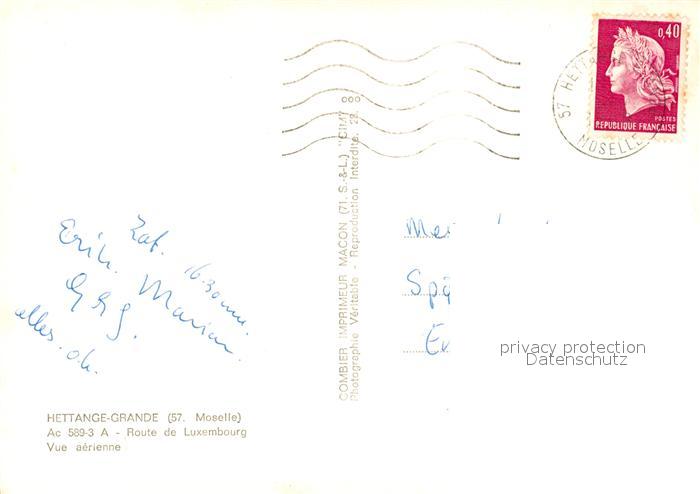 0,40
POSTES
REPUBLIQUE FRANÇAISE
57 HETTA
MOSELLE
COMBIER IMPRIMEUR MACON (71. S.-&-L.) "CIM"
Photographie Véritable - Reproduction Interdite.
Erih. Marian.
alles. o.k.
privacy protection
Datenschutz
HETTANGE-GRANDE (57. Moselle)
Ac 589-3 A - Route de Luxembourg
Vue aérienne